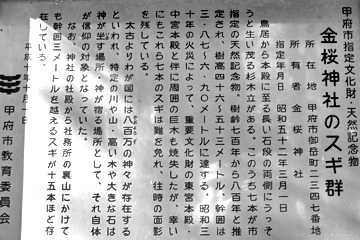 甲府市指定文化財 天然記念物
金桜神社のスギ群
所在地 甲府市御岳町二三四七番地
所有者 金桜神社
指定年月日 昭和五十二年三月一日
鳥居から本殿に至る長い石段の両側にうっそ
うと生い茂る杉木立がある。このうち七本が市
指定の天然記念物。樹齢七百年から八百年と推
定され、樹高四十六・五十五メートル、幹囲は
三・八七〜六・九〇メートルに達する。昭和三
十年の火災によって、重要文化財の東宮本殿・
中宮本殿と伴に周囲の巨木も焼失したが、幸い
にもこれら七本のスギは難を免れ、往時の面影
を残している。
太古よりわが国には八百万の神々が存在する
といわれ、特定の川や山・高い木や大きな石は
神が坐す場所・神が宿る場所として、それ自体
が信仰の対象となっていた。
なお、神社の社殿から社務所の裏山にかけて
も幹囲三メートルを越えるスギが十五本ほど存
在している。
甲府市教育委員会